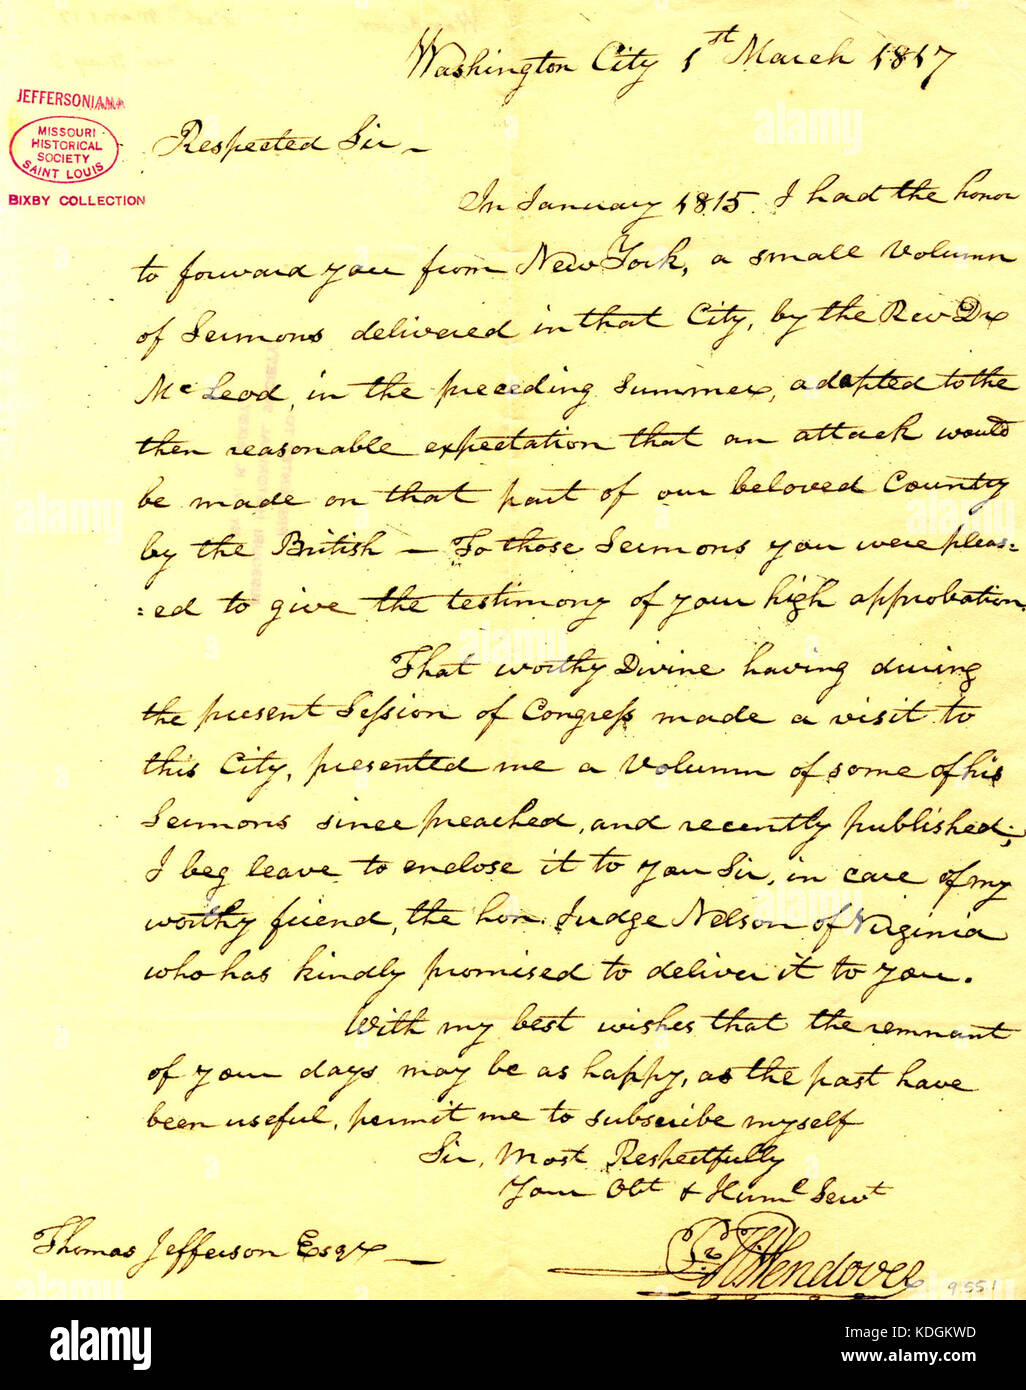 Washington City 1st March 1817
JEFFERSONIANA
MISSOURI
HISTORICAL
SOCIETY
SAINT LOUIS
BIXBY COLLECTION
Respected Sir –
In January 1815. I had the honor
to forward you from New York, a small Volumn
of Sermons delivered in that City, by the Rev Dr
McLeod, in the preceding Summer, adapted to the
then reasonable expectation that an attack would
be made on that part of our beloved Country
by the British – To those Sermons you were pleas=
=ed to give the testimony of your high approbation.
That worthy Divine having during
the present Session of Congress made a visit to
this City, presented me a Volumn of some of his
Sermons since preached, and recently published;
I beg leave to enclose it to you Sir, in care of my
worthy friend, the hon. Judge Nelson of Virginia
who has kindly promised to deliver it to you.
With my best wishes that the remnant
of your days may be as happy, as the past have
been useful, permit me to subscribe myself
Sir, Most Respectfully
Your Obt & Humle Servt
Thomas Jefferson Esqr –
P. H. Wendover
9551
alamy
a
alamy
Image ID: KDGKWD
www.alamy.com